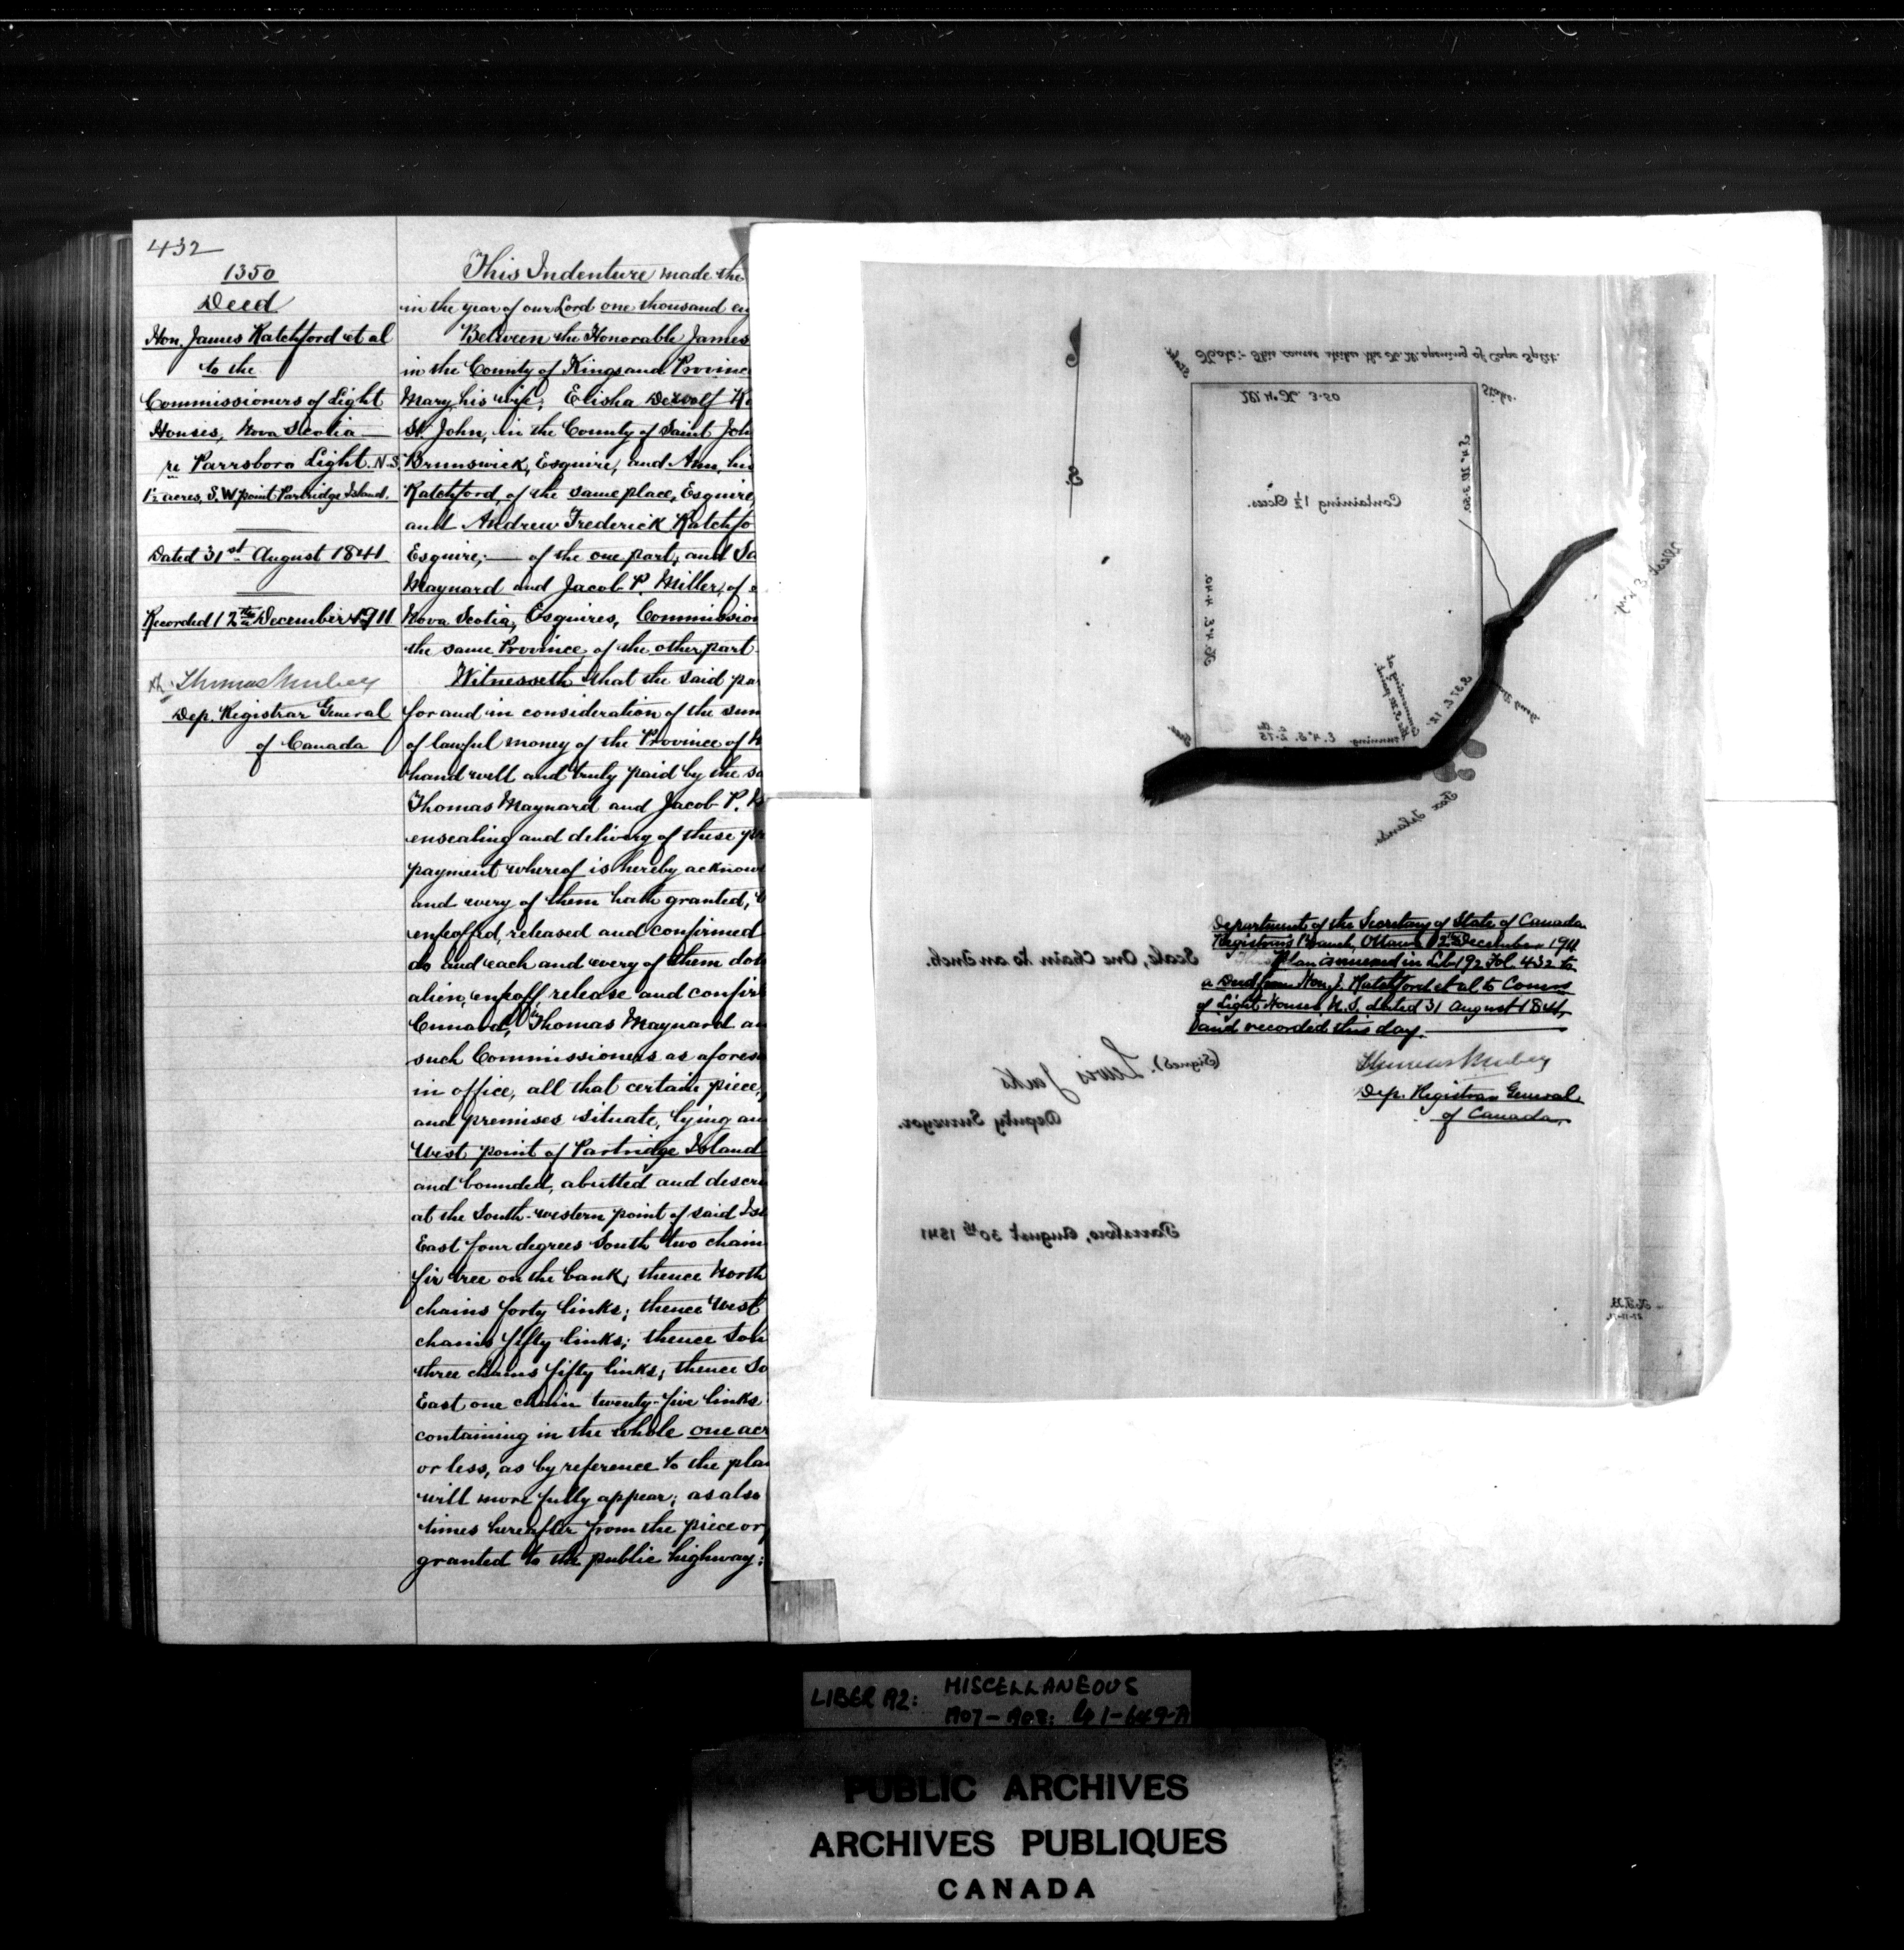 432
1350
Deed
Hon. James Ratchford et al
to the
Commissioners of Light
Houses, Nova Scotia
re Parrsboro Light. N.S.
1½ acres, S.W point Partridge Island.
Dated 31st August 1841
Recorded 12th December 1911
Thomas Mulvey
Dep. Registrar General
of Canada
This Indenture made the
in the year of our Lord one thousand
Between the Honorable James
in the County of Kings and Provinc
Mary, his wife; Elisha DeWolf
St. John, in the County of Saint Joh
Brunswick, Esquire, and Ann, his
Ratchford, of the same place, Esquire
and Andrew Frederick Ratchfo
Esquire; of the one part, and Sa
Maynard and Jacob P. Miller, of
Nova Scotia, Esquires, Commission
the same Province, of the other part
Witnesseth that the said pa
for and in consideration of the sum
of lawful money of the Province of
hand well and truly paid by the sa
Thomas Maynard and Jacob P.
ensealing and delivery of these
payment whereof is hereby acknow
and every of them hath granted,
enfeoffed, released and confirmed
do and each and every of them doth
alien, enfeoff, release and confir
Cunard, Thomas Maynard an
such Commissioners as afores
in office, all that certain piece,
and premises situate, lying an
West point of Partridge Island
and bounded, abutted and descri
at the South-western point of said Isl
East four degrees South two chain
fir tree on the bank; thence North
chains forty links; thence West
chains fifty links; thence Sou
three chains fifty links; thence So
East one chain twenty-five links
containing in the whole one acr
or less, as by reference to the pla
will more fully appear; as also
times hereafter from the piece or
granted to the public highway;
Note:- This course strikes the N.W. opening of Cape Split.
Stake
W. 4° N. 3.50
Stake
S. 4° W. 3.50
S.
Containing 1½ Acres.
N. 4° E. 4.40
E. 4° S. 2.75
Running
Commencing
at S.W. point
Fir
Five Islands.
Scale, One Chain to an Inch.
(Signed). Lewis Jenks
Deputy Surveyor.
Parrsboro, August 30th 1841
Department of the Secretary of State of Canada
Registrar's Branch, Ottawa 12th December 1911
This Plan is annexed in Lib 192 Fol. 432 to
a Deed from Hon. J. Ratchford et al to Comrs
of Light Houses N.S. dated 31 August 1841,
and recorded this day.
Thomas Mulvey
Dep. Registrar General
of Canada
LIBER 192: MISCELLANEOUS
PUBLIC ARCHIVES
ARCHIVES PUBLIQUES
CANADA